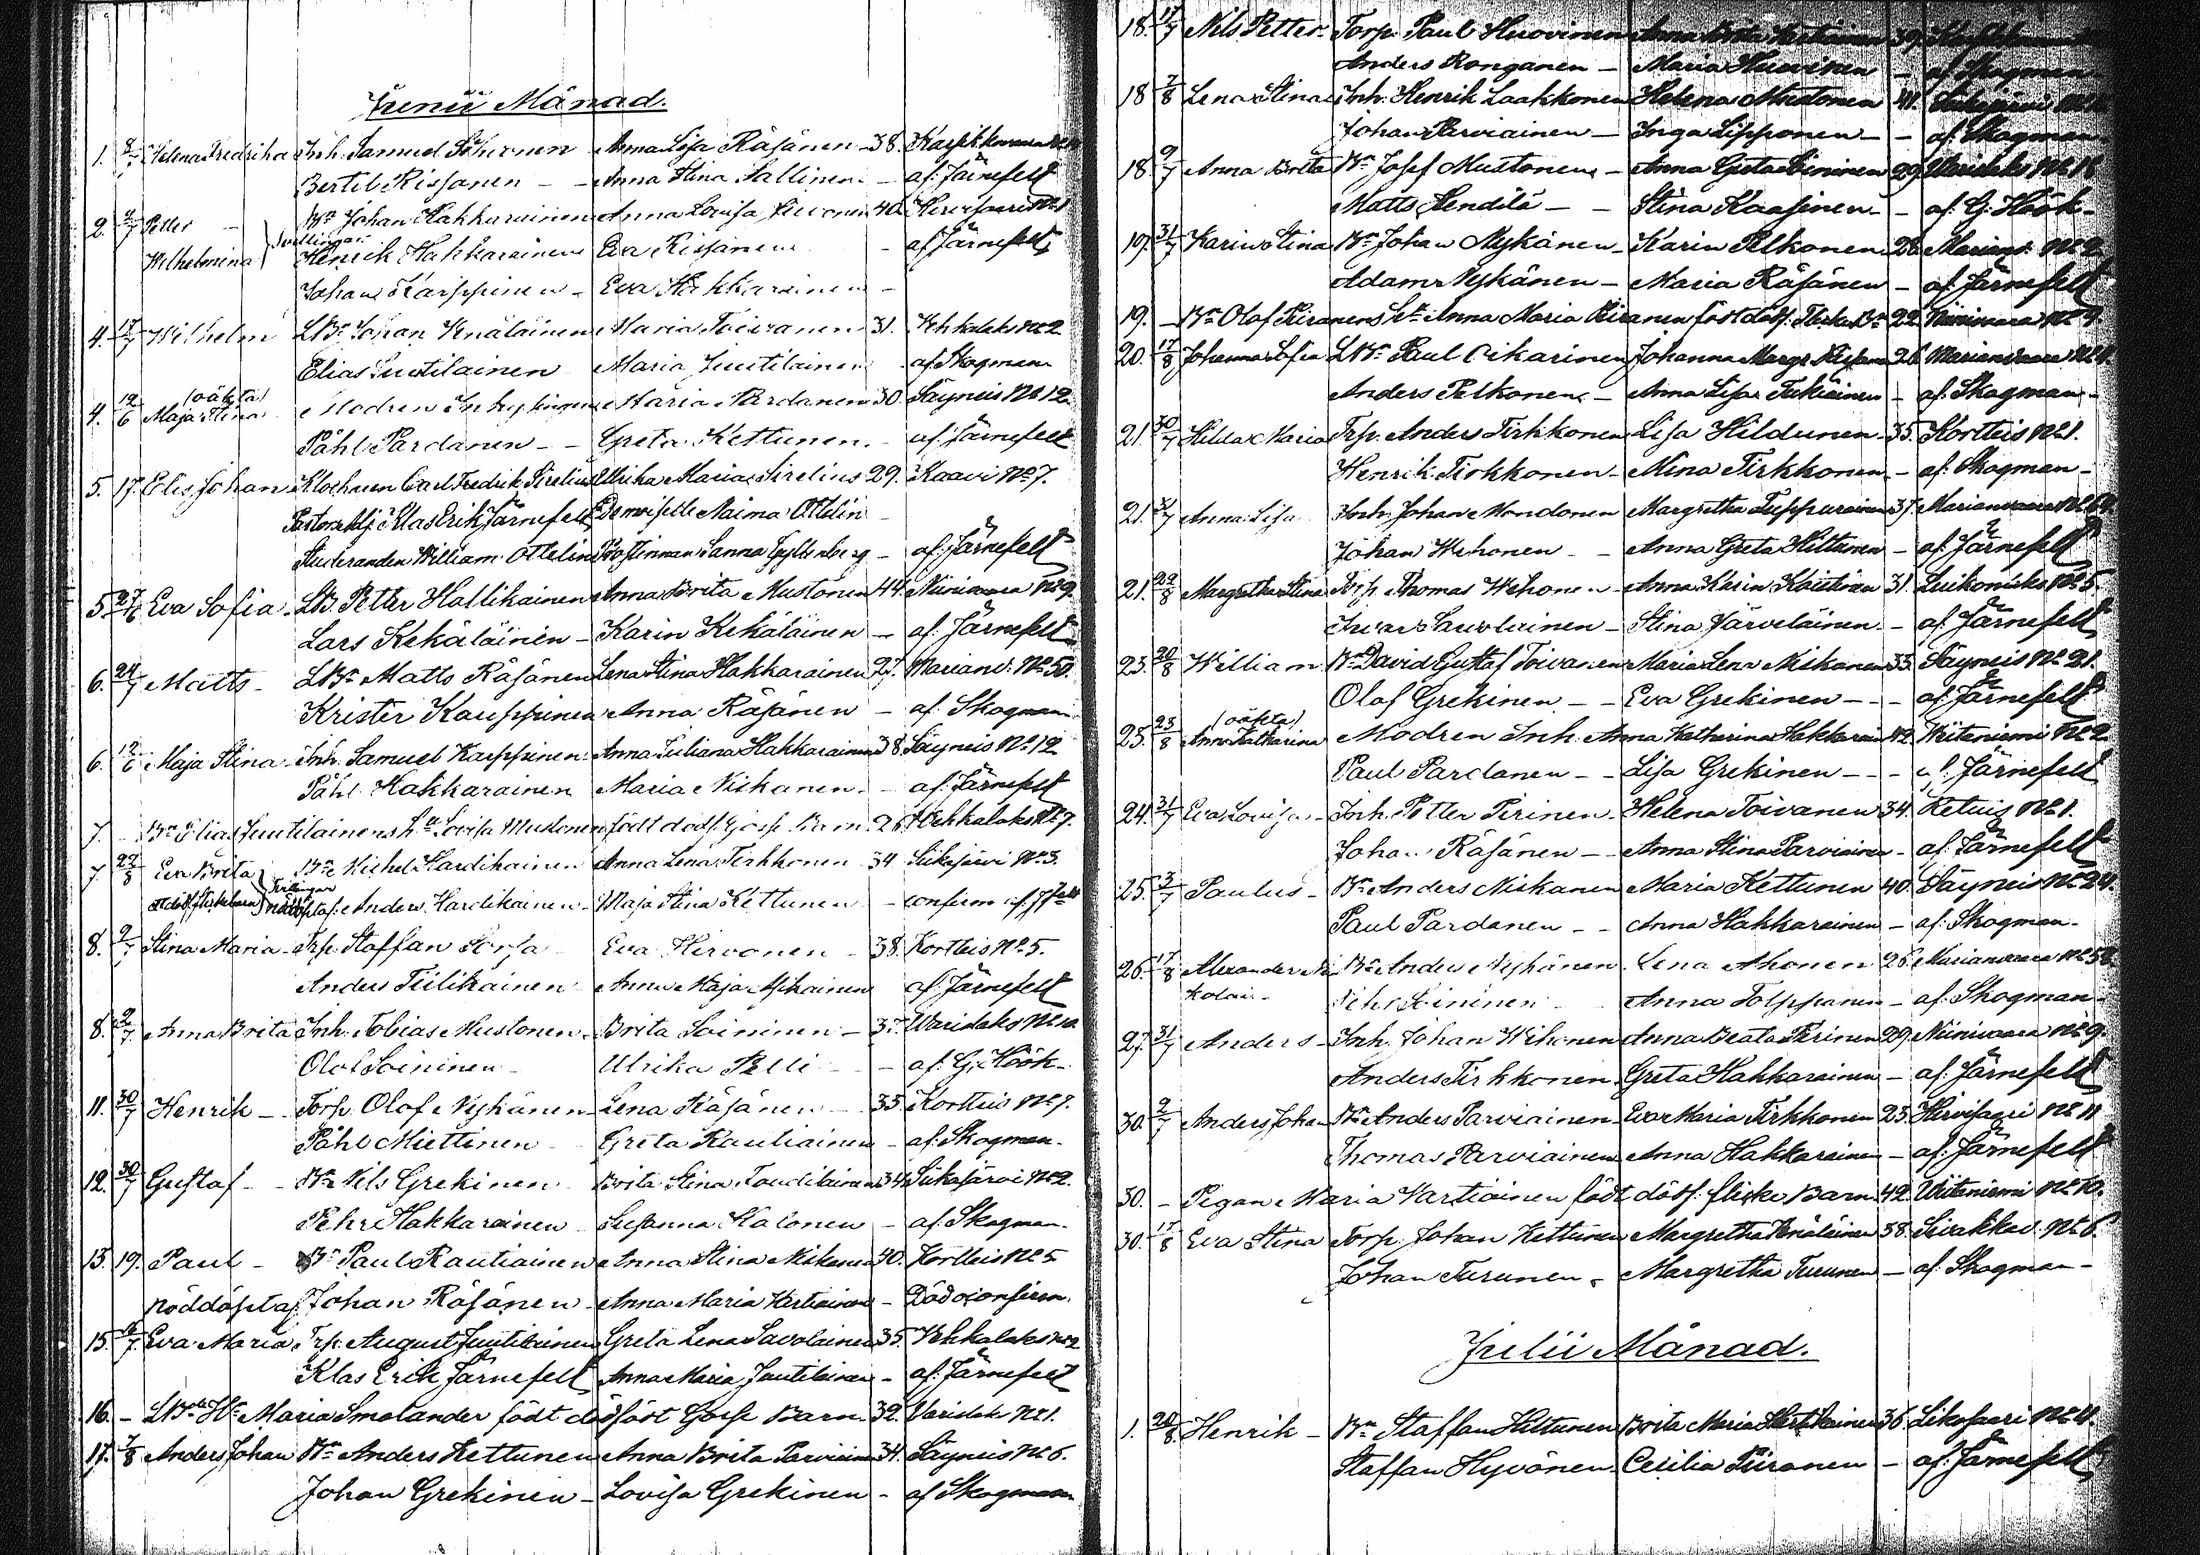 Junii Månad.
1. 8/7 Helena Fredrika Inh. Samuel Anna Lisa Räsänen 38.
Bertil Rissanen - - Anna Stina Sallinen - af: Järnefelt
2. Petter - Bn Johan Hakkarainen Anna Lovisa 40. Hirvisaari No 1
Wilhelmina Tvillingar Henrik Hakkarainen Eva Rissanen - af Järnefelt
Johan Karppinen - Eva Hakkarainen -
4. 17/7 Wilhelm LBn Johan Venäläinen Maria Toivanen 31. Vehkalaks No 2
Elias Juutilainen Maria Juutilainen af Skogman
4. 12/6 (oäkta) Maja Stina Modren Inh. Maria Pardanen 30. Säyneis No 12
Påhl Pardanen - - Greta Kettunen - af: Järnefelt
5. 17. Elis Johan Klockaren Carl Fredrik Sirelius Ulrika Maria Sirelius 29. Kaavi No 7.
Klas Erik Järnefelt Demoiselle Naima Ottelin
Studeranden William Ottelin Sanna - af: Järnefelt
5. 27/6 Eva Sofia - LB. Petter Hallikainen Anna Brita Mustonen 44. Niinivaara No 9.
Lars Kekäläinen - Karin Kekäläinen - af. Järnefelt
6. 24/7 Matts - LBn Matts Räsänen Lena Stina Hakkarainen 27. Marianv: No 50.
Krister Kauppinen Anna Räsänen - af. Skogman
6. 12/6 Maja Stina - Inh. Samuel Karppinen Anna Juliana Hakkarainen 38. Säyneis No 12
Påhl Hakkarainen Maria Niskanen - af: Järnefelt
7. Bn Elias Juutilainens h:u Lovisa Mustonen födt dödf. Gosse Barn 26. Vehkalaks No 7.
7. 22/8 Eva Brita Bn Michel Hardikainen Anna Lena Tirkkonen 34 Siikajärvi No 3.
nöddöpt af: Anders Hardikainen Maja Stina Kettunen - confirm af
8. 2/7 Stina Maria - Trp. Staffan Sorsa Eva Hirvonen - 38. Kortteis No 5.
Anders Tiilikainen - Anna Maja Mikainen af: Järnefelt
8. 2/7 Anna Brita Inh. Tobias Mustonen - Brita Soininen - 37. Varislaks No 10.
Olof Soininen - Ulrika Pelli - af: G. Höök -
11. 30/7 Henrik - Torp. Olof Nykänen Lena Räsänen - 35 Kortteis No 7.
Påhl Miettinen Greta Rautiainen - af: Skogman -
12. 30/7 Gustaf - Bn Nils Grekinen Brita Stina 34. Siikajärvi No 2.
Pehr Hakkarainen Susanna Halonen - af: Skogman.
13. 19. Paul - Bn Paul Rautiainen Anna Stina Niskanen 40. Kortteis No 5
nöddöpt af Johan Räsänen - Anna Maria - Död o confirm.
15. Eva Maria Trp. August Juutilainen Greta Lena Savolainen 35. Vehkalaks No 2
Klas Erik Järnefelt Anna Maria Juutilainen - af: Järnefelt
16. - Maria Smolander födt dödfödt Gosse Barn. 32. Varislak No 1.
17. 7/8 Anders Johan Bn Anders Kettunen Anna Brita Parviainen 34. Säyneis No 6.
Johan Grekinen - Lovisa Grekinen - af Skogman
18. 17/7 Nils Petter - Torp. Paul Huovinen Anna Brita 39.
Anders Ronganen - Maria Huovinen - af Skogman
18 7/8 Lena Stina Inh. Henrik Laakkonen Helena Mustonen 41.
Johan Parviainen - Inga Lipponen - - af. Skogman
18. 9/7 Anna Brita Bn Josef Mustonen - Anna Greta Soininen 29. Varislaks No
Matts Hendilä - - Stina Kaasinen - - af. G. Höök -
19. 31/7 Karin Stina Bn Johan Nykänen - Karin Pelkonen 28. Marianv. No 2
Adam Nykänen - Maria Räsänen - af. Järnefelt
19. - Bn Olof Piiranens h:u Anna Maria Piiranen föst dödf: flicke Bn 22. Niinivaara No
20. 17/8 Johanna Sofia LBn Paul Oikarinen Johanna Margr. 26. Marianvaara No
Anders Pelkonen - Anna Lisa Tukiainen - af. Skogman -
21. 30/7 Hilda Maria Trp. Anders Tirkkonen Lisa Hildunen 35. Kortteis No 1.
Henrik Tirkkonen - Mina Tirkkonen - af. Skogman -
21. Anna Lisa Inh. Johan Mondonen Margretha Tuppurainen 37. Marianvaara No
Johan Wehonen - - Anna Greta Hiltunen - af. Järnefelt
21. 22/8 Margretha Stina Trp. Thomas Wehonen Anna Karin 31. No 5
Savolainen - Stina Järveläinen - af. Järnefelt
23. 20/8 William Bn David Gustaf Toivanen Maria Lena Niskanen 33. Säyneis No 21.
Olof Grekinen - - Eva Grekinen - - - af: Järnefelt
23. 23/8 (oäkta) Anna Katharina Modren Inh. Anna Katharina Hakkarain 42. Viitaniemi No 2
Paul Pardanen - - Lisa Grekinen - - - af. Järnefelt
24. 31/7 Eva Lovisa - Inh. Petter Pirinen - Helena Toivanen 34. Retuis No 1.
Johan Räsänen - - Anna Stina Parviainen - af. Järnefelt
25. 3/7 Paulus - Bn Anders Niskanen Maria Kettunen 40. Säyneis No 24.
Paul Pardanen - - Anna Hakkarainen - af. Skogman.
26. 17/8 Alexander Ni- Bn Anders Nykänen Lena Ahonen 26. Marianvaara No 58
kolai - Pehr Soininen Anna Tolppanen - af. Skogman -
27. 31/7 Anders - Inh. Johan Wihonen Anna Beata Pirinen 29. Niinivaara No 9.
Anders Tirkkonen Greta Hakkarainen - af. Järnefelt
30. 9/7 Anders Johan Bn Anders Parviainen Eva Maria Tirkkonen 23. Hirvisaari No 11
Thomas Parviainen Anna Hakkarainen - af. Järnefelt
30. - Pigan Maria Vartiainen födt dödf. flicke Barn 42. Viitaniemi No 10.
30. 17/8 Eva Stina Torp. Johan Kettunen Margretha Venäläinen 38. Sivakkav. No 6.
Johan Turunen - Margretha Turunen - af. Skogman -
Julii Månad.
1. 20/8 Henrik - Bn Staffan Hiltunen Brita Maria 36. Likosaari No 4.
Staffan Hyvönen - Cecilia Piiranen - af. Järnefelt